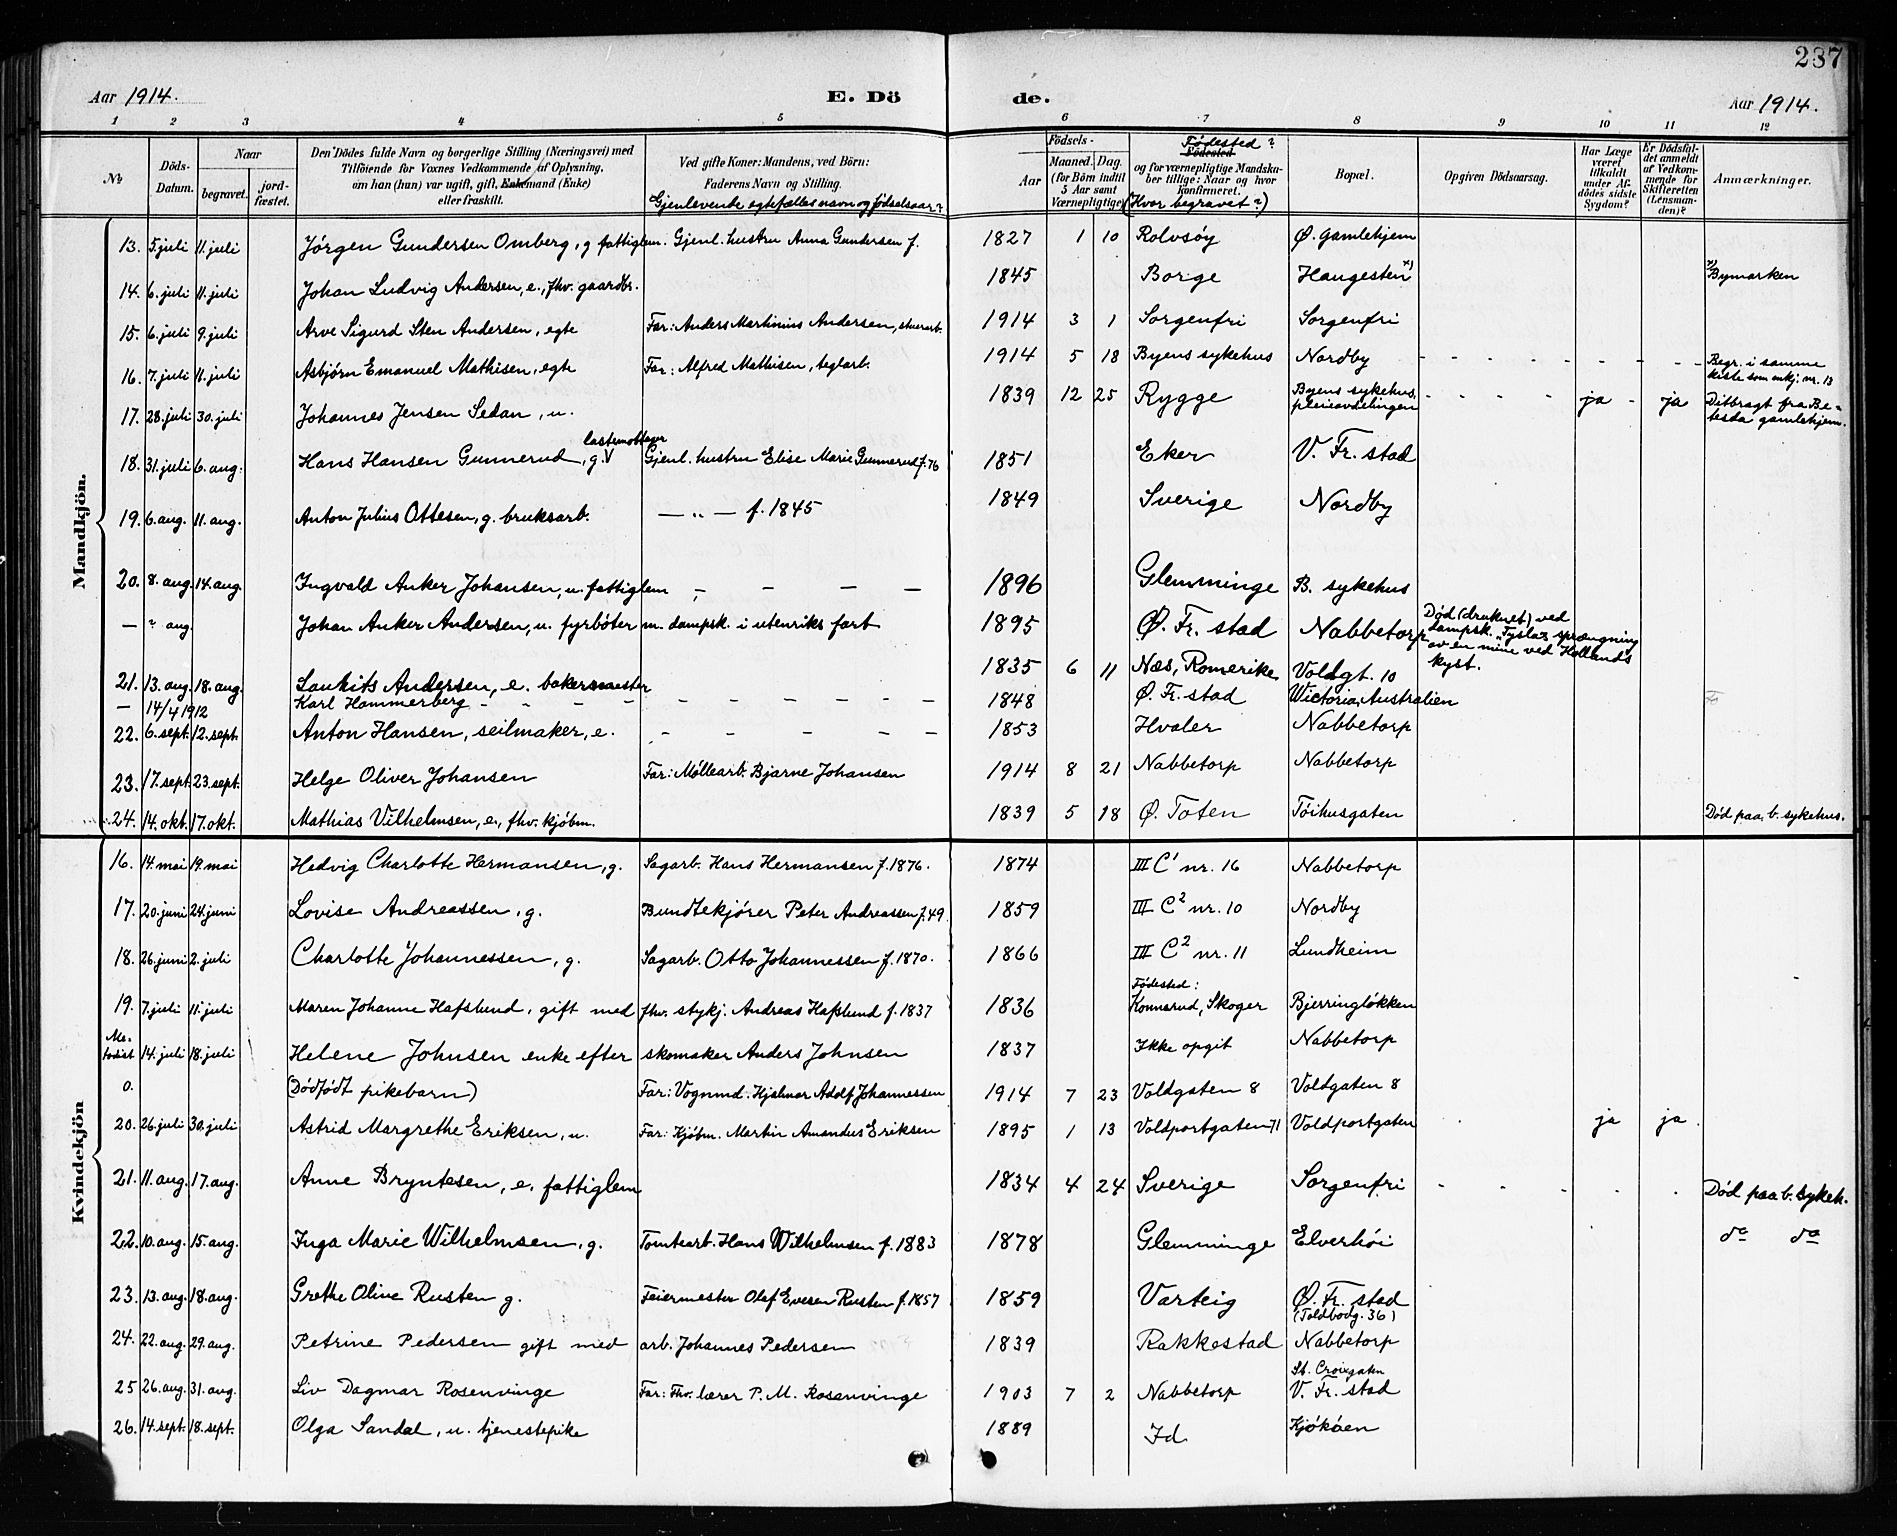 237
Aar 1914. E. Dö de. Aar 1914.
1 2 3 4 5 6 7 8 9 10 11 12
№ Döds-Datum. Naar begravet. jordfæstet. Den Dödes fulde Navn og borgerlige Stilling (Næringsvei) med Tilföiende for Voxnes Vedkommende af Oplysning, om han (hun) var ugift, gift, Enkemand (Enke) eller fraskilt. Ved gifte Koner: Mandens, ved Börn: Faderens Navn og Stilling. Gjenlevende egtefælles navn og fødselsaar? Födsels- Aar Maaned. Dag. (for Börn indtil 5 Aar samt Værnepligtige) Födested Fødested? og for værnepligtige Mandskaber tillige: Naar og hvor konfirmeret. (Hvor begravet?) Bopæl. Opgiven Dödsaarsag. Har Læge været tilkaldt under Afdödes sidste Sygdom? Er Dödsfaldet anmeldt af Vedkommende for Skifteretten (Lensmanden)? Anmærkninger.
Mandkjön.
13. 5. juli 11. juli Jörgen Gundersen Omberg, g fattiglem. Gjenl. hustru Anna Gundersen f. 1827 1 10 Rolvsöy Ø. Gamlehjem
14. 6. juli 11. juli Johan Ludvig Andersen, e., fhv. gaardbr. 1845 Borge Haugesten x) x) Bymarken
15. 6. juli 9. juli Arve Sigurd Sten Andersen, egte Far: Anders Martinius Andersen, stuerarb. 1914 3 1 Sorgenfri Sorgenfri
16. 7. juli 11. juli Asbjörn Emanuel Mathisen, egte Far: Alfred Mathisen, teglarb. 1914 5 18 Byens sykehus Nordby - - - - - - - - Begr. i samme kiste som mkj. nr. 13
17. 28. juli 30. juli Johannes Jensen Sedan, u. 1839 12 25 Rygge Byens sykehus, pleieavdelingen - - - - ja - ja Ditbragt fra Betesda gamlehjem.
18. 31. juli 6. aug. Hans Hansen Gunnerud, g. V lastemottager Gjenl. hustru Elise Marie Gunnerud f. 76 1851 Eker V. Fr. stad
19. 6. aug. 11. aug. Anton Julius Ottesen, g. bruksarb. — „ — f. 1845 1849 Sverige Nordby
20. 8. aug. 14. aug. Ingvald Anker Johansen, u. fattiglem - - - - 1896 Glemminge B. sykehus
— ? aug. Johan Anker Andersen, u. fyrböter m. dampsk. i utenriks fart 1895 Ø. Fr. stad Nabbetorp Död (druknet) ved dampsk. „Tysla"s sprængning av en mine ved Hollands kyst.
21. 13. aug. 18. aug. Laukits Andersen, e. bakermester 1835 6 11 Næs, Romerike Voldgt. 10
— 14/4 1912 Karl Hammerberg - - - - - - - - - - 1848 Ø. Fr. stad Wictoria, Australien
22. 6. sept. 12. sept. Anton Hansen, seilmaker, e. - - - - - 1853 Hvaler Nabbetorp
23. 17. sept. 23. sept. Helge Oliver Johansen Far: Möllearb. Bjarne Johansen 1914 8 21 Nabbetorp Nabbetorp
24. 14. okt. 17. okt. Mathias Vilhelmsen, e., fhv. kjöbm. 1839 5 18 Ø. Toten Töihusgaten Död paa b. sykehus.
Kvindekjön
16. 14. mai 19. mai Hedvig Charlotte Hermansen, g. Sagarb. Hans Hermansen f. 1876. 1874 III C¹ nr. 16 Nabbetorp
17. 20. juni 24. juni Lovise Andreassen, g. Bundtekjörer Peter Andreassen f. 49 1859 III C² nr. 10 Nordby
18. 26. juni 2. juli Charlotte Johannessen, g. Sagarb. Otto Johannessen f. 1870. 1866 III C² nr. 11 Lundheim
19. 7. juli 11. juli Maren Johanne Hafslund, gift med fhv. stykj. Andreas Hafslund f. 1837 1836 Födested: Konnerud, Skoger Bjerringlökken
Metodist 14. juli 18. juli Helene Johnsen enke efter skomaker Anders Johnsen 1837 Ikke opgit Nabbetorp
0. (Dödfödt pikebarn) Far: Vognmd. Hjalmar Adolf Johannessen 1914 7 23 Voldgaten 8 Voldgaten 8
20. 26. juli 30. juli Astrid Margrethe Eriksen, u. Far: Kjöbm. Martin Amandus Eriksen 1895 1 13 Voldportgaten 71 Voldportgaten ja ja
21. 11. aug. 17. aug. Anne Bryntesen, e. fattiglem 1834 4 24 Sverige Sorgenfri - - - - - Död paa b. sykeh.
22. 10. aug. 15. aug. Inga Marie Wilhelmsen, g. Tomtearb. Hans Wilhelmsen f. 1883 1878 Glemminge Elverhöi do do
23. 13. aug. 18. aug. Grethe Oline Rusten g. Feiermester Olaf Evesen Rusten f. 1857 1859 Varteig Ø. Fr. stad (Toldbodg. 36)
24. 22. aug. 29. aug. Petrine Pedersen gift med arb. Johannes Pedersen 1839 Rakkestad Nabbetorp
25 26. aug. 31. aug. Liv Dagmar Rosenvinge Far: Fhv. lærer P. M. Rosenvinge 1903 7 2 Nabbetorp St. Croixgaten V. Fr. stad
26. 14. sept. 18. sept. Olga Sandal, u. tjenestepike 1889 Id Kjököen